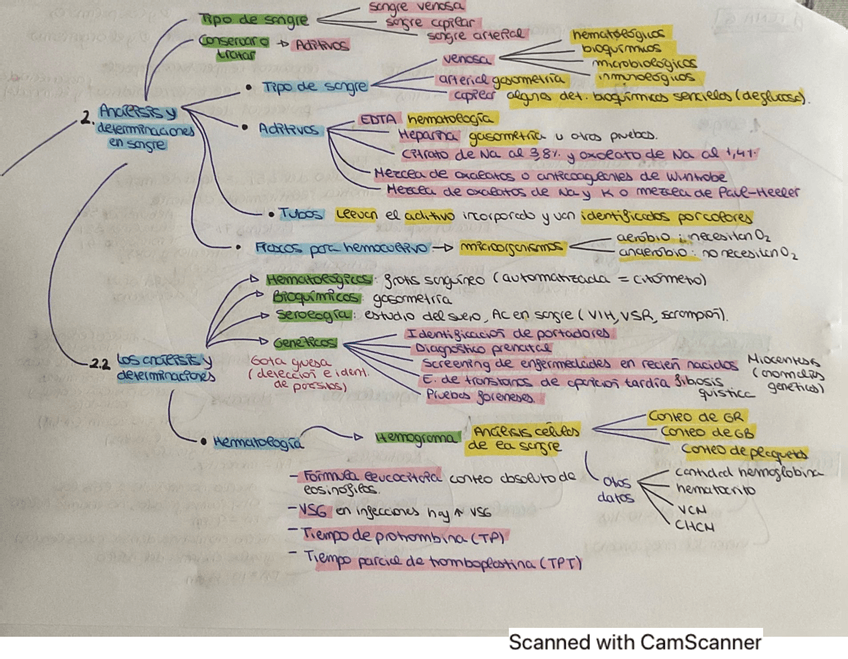 Tipo de sangre
sangre venosa
sangre capilar
sangre arterial
Conservar o tratar → Aditivos
2. Análisis y
determinaciones
en sangre
• Tipo de sangre
venosa
hematológicos
bioquímicos
microbiológicos
inmunológicos
arterial gasometría
capilar algnas det. bioquímicas sencillas (de glucosa).
• Aditivos
EDTA hematología
Heparina gasometría u otras pruebas.
Citrato de Na al 3,8% y oxalato de Na al 1,4%
Mezcla de oxalatos o anticoagulantes de Wintrobe
Mezcla de oxalatos de Na y K o mezcla de Paul-Heller
• Tubos llevan el aditivo incorporado y van identificados por colores
• Frascos para hemocultivo → microorganismos
aerobio : necesitan O2
anaerobio : no necesitan O2
2.2 Los análisis y
determinaciones
Hematológicos: frotis sanguíneo (automatizada = citómetro)
Bioquímicos: gasometría
Serología: estudio del suero, AC en sangre (VIH, VSR, sarampión).
Genéticos
Gota gruesa
(detección e ident.
de parásitos)
Identificación de portadores
Diagnóstico prenatal
Screening de enfermedades en recién nacidos
E. de transtornos de aparición tardía
Pruebas forenses
fibrosis
quística
(anomalías
genéticas)
• Hematología
Hemograma
Análisis células
de la sangre
Conteo de GR
Conteo de GB
Conteo de plaquetas
otros
datos
cantidad hemoglobina
hematocrito
VCM
CHCM
- Fórmula leucocitaria conteo absoluto de
eosinófilos.
- VSG en infecciones hay ↑ VSG
- Tiempo de protrombina (TP)
- Tiempo parcial de tromboplastina (TPT)
Scanned with CamScanner